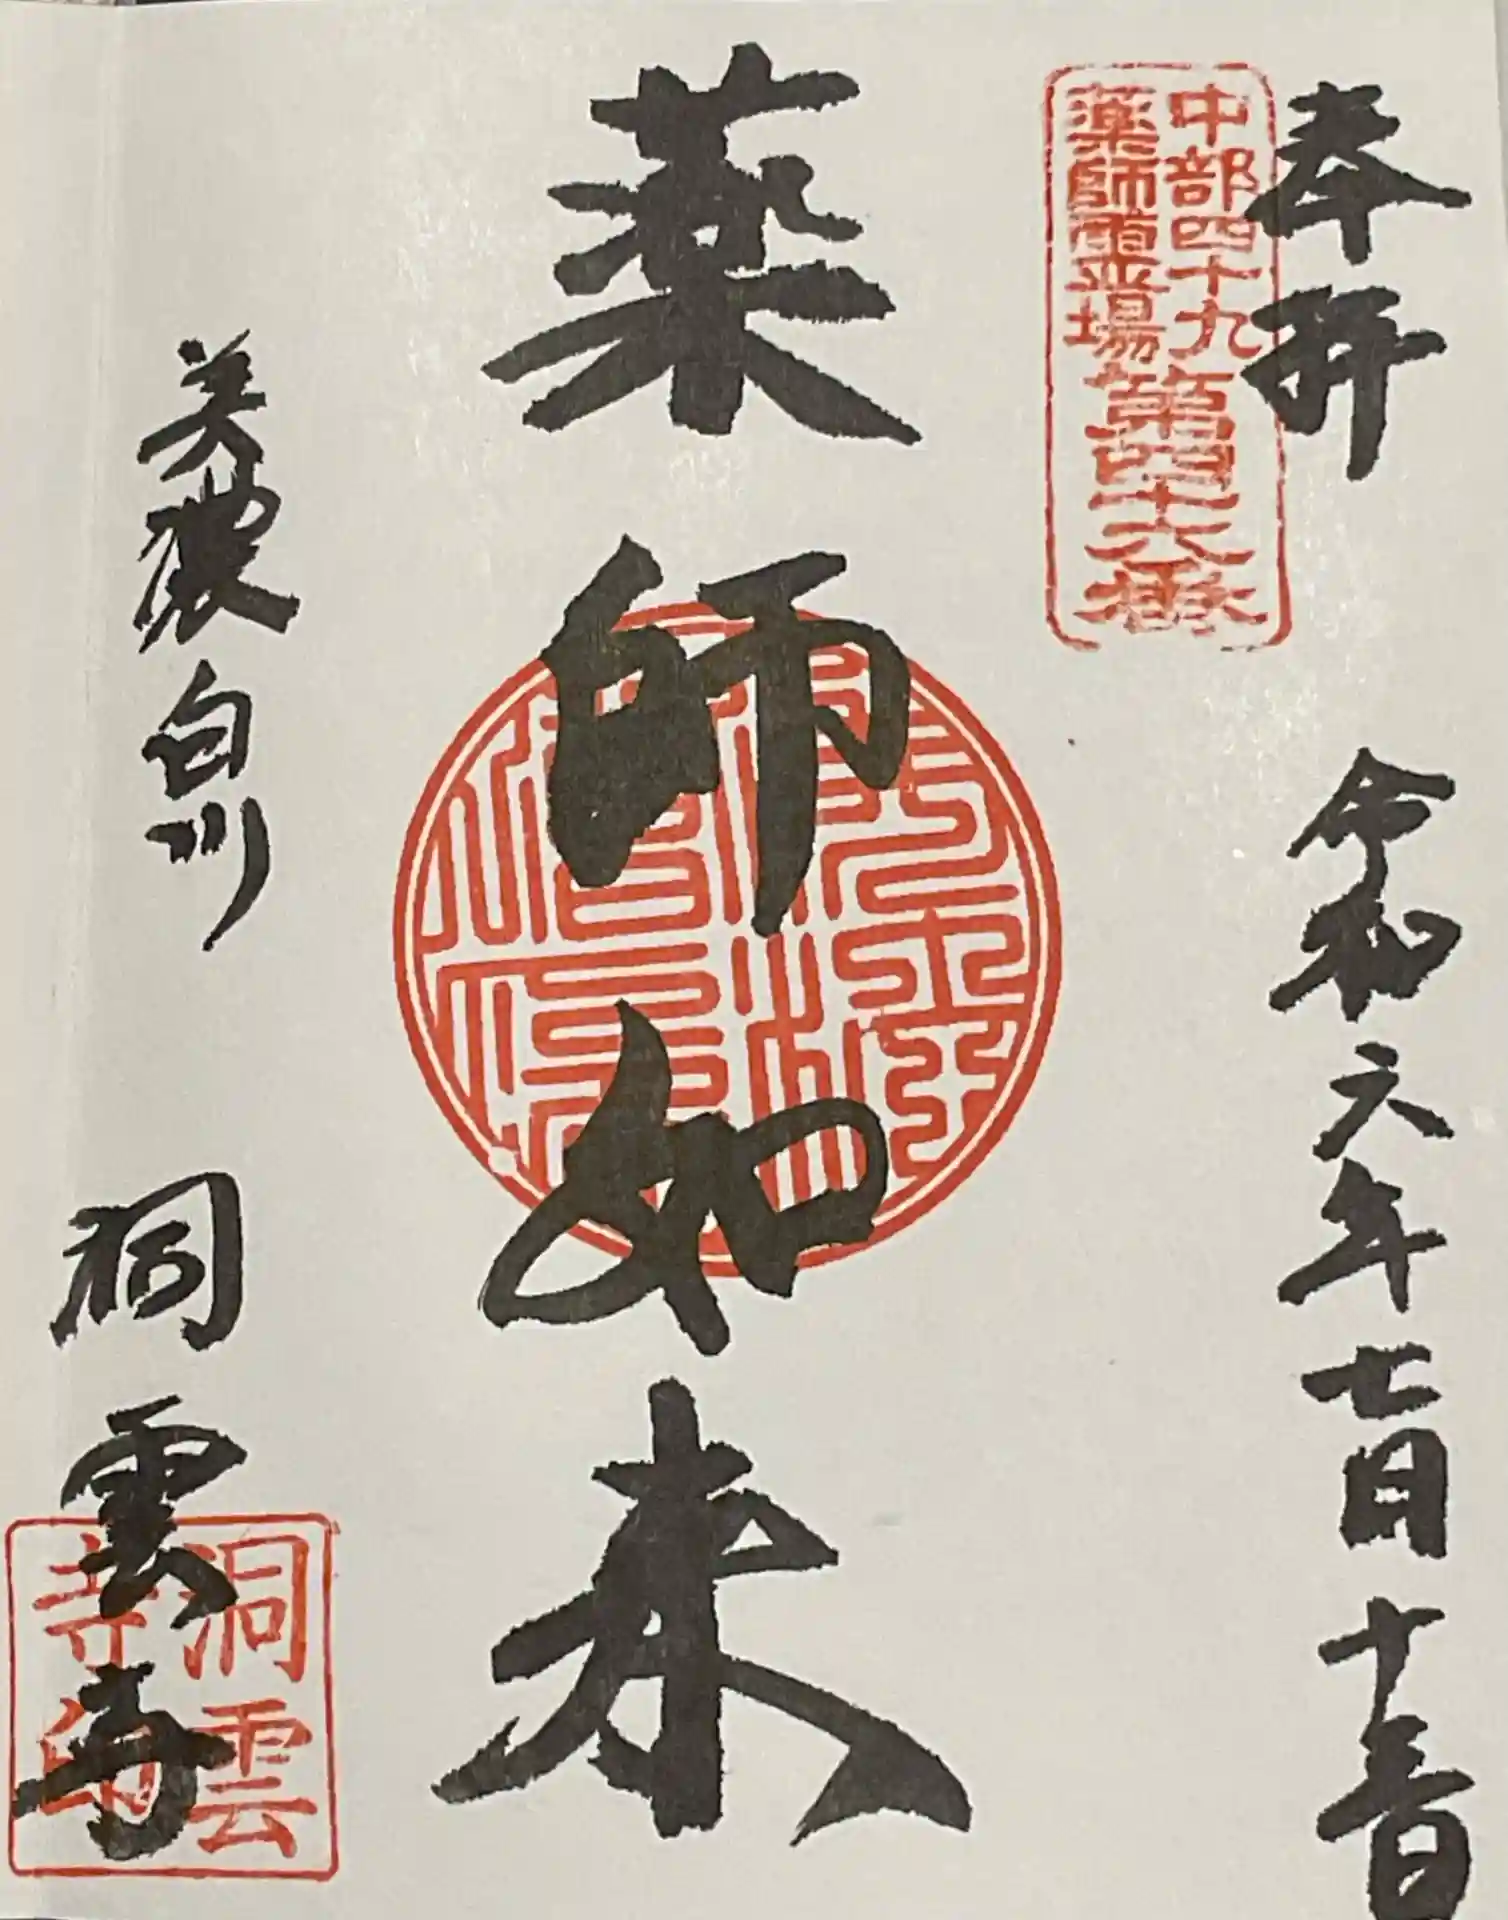 奉拝 令和六年七月十日
中部四十九
薬師霊場
第四十六番
薬師如来
美濃白川 洞雲寺
洞雲
寺印